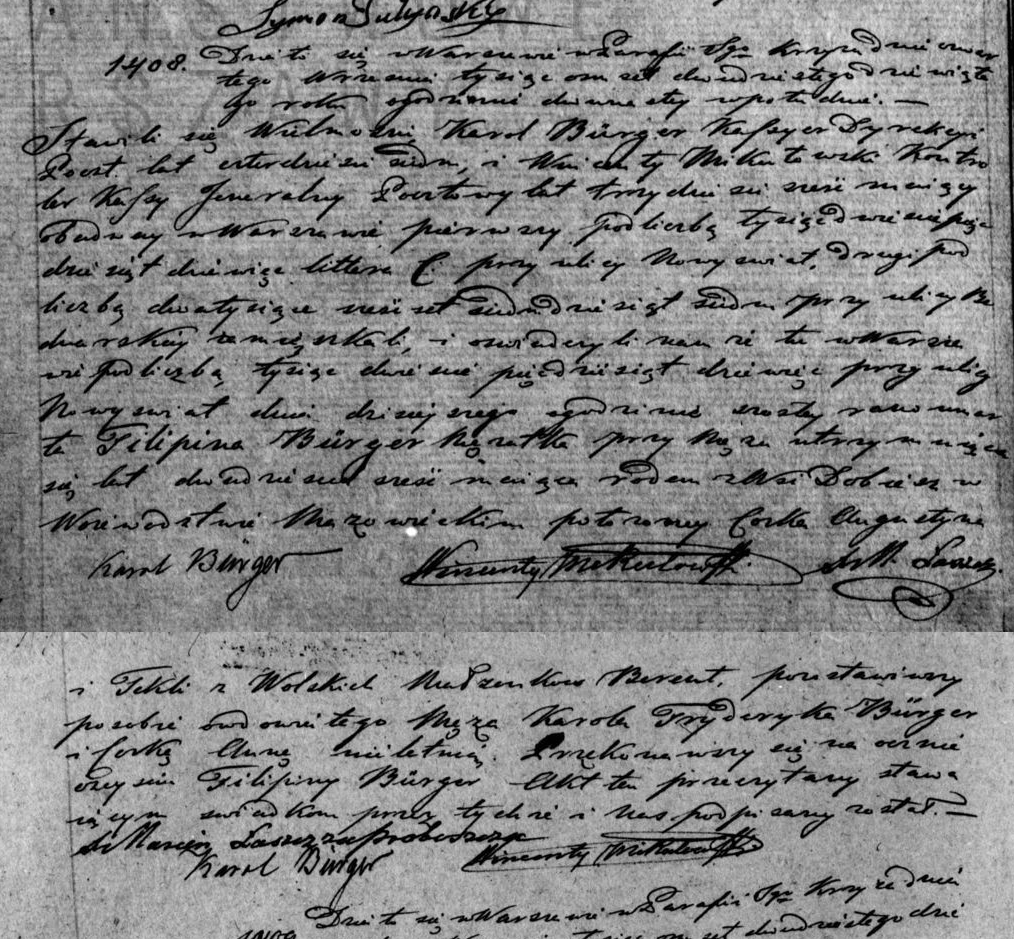 Szymon
1408. Dzieło się w Warszawie w Parafii Sgo Krzyża dnia czwar
tego Września tysiąc ośmset dwudziestego dziewiąte
go roku o godzinie dwunastej w południe. —
Stawili się Wielmożni Karol Bürger Kassyer Dyrekcyi
Poczt lat czterdzieści siedm, i Wincenty Mikułowski Kontro
ler Kassy Jeneralney Pocztowy lat trzydzieści sześć maiący
obadway w Warszawie pierwszy pod liczbą tysiąc dwieście pięć
dziesiąt dziewięć littera C. przy ulicy Nowyswiat, drugi pod
liczbą dwatysiące sześćset siedmdziesiąt siedm przy ulicy Be
dnarskiéy zamięszkali, i oświadczyli nam że tu w Warsza
wie pod liczbą tysiąc dwieście pięćdziesiąt dziewięć przy ulicy
Nowyswiat dnia dzisiejszego o godzinie szostey rano umar
ła Filipina Bürger Kęzatka przy Męzu utrzymuiąca
się lat dwadzieścia sześć maiąca rodem z Wsi w
Woiewodztwie Mazowieckim położoney Corka Augustyna
Karol Bürger Wincenty Mikułowski X M. Łaszcz.
i Tekli z Wolskich Małżonkow Berent, pozostawiwszy
po sobie owdowiałego Męża Karola Fryderyka Bürger
i Corkę Annę nieletnią. Przekonawszy się naocznie
o zeyściu Filipiny Bürger Akt ten przeczytany stawa
iącym świadkom przez tychże i Nas podpisany został. —
X Marcin Łaszcz za Proboszcza
Karol Bürger Wincenty Mikułowski
Dzieło się w Warszawie w Parafii Sgo Krzyża dnia
ośmset dwudziestego dzie